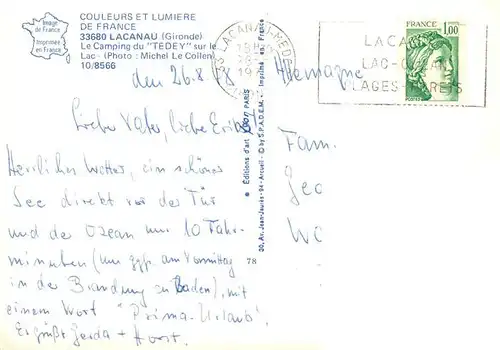 COULEURS ET LUMIERE
DE FRANCE
33680 LACANAU (Gironde)
Le Camping du "TEDEY" sur le
Lac - (Photo : Michel Le Collen)
10/8566
Image
de
France
Imprimée
en
France
den 26.8
Liebe Vater, liebe
Herrliches Wetter, ein schöner
See direkt vor der Tür
und der Ozean nur 10 Fahr-
minuten (um ggf. am Vormittag
in der Brandung zu Baden), mit
einem Wort "Prima-Urlaub".
Es grüßt Gerda + Horst.
Editions d'art PARIS
30, Av. Jean-Jaurès - 94 - Arcueil - © by S.P.A.D.E.M. - Imprimé en France
78
33 LACANAU-MEDOC
FRANCE
1,00
POSTES
LACA
LAC-O
PLAGES-FORETS
Allemagne
Fam.
Geo
Wo